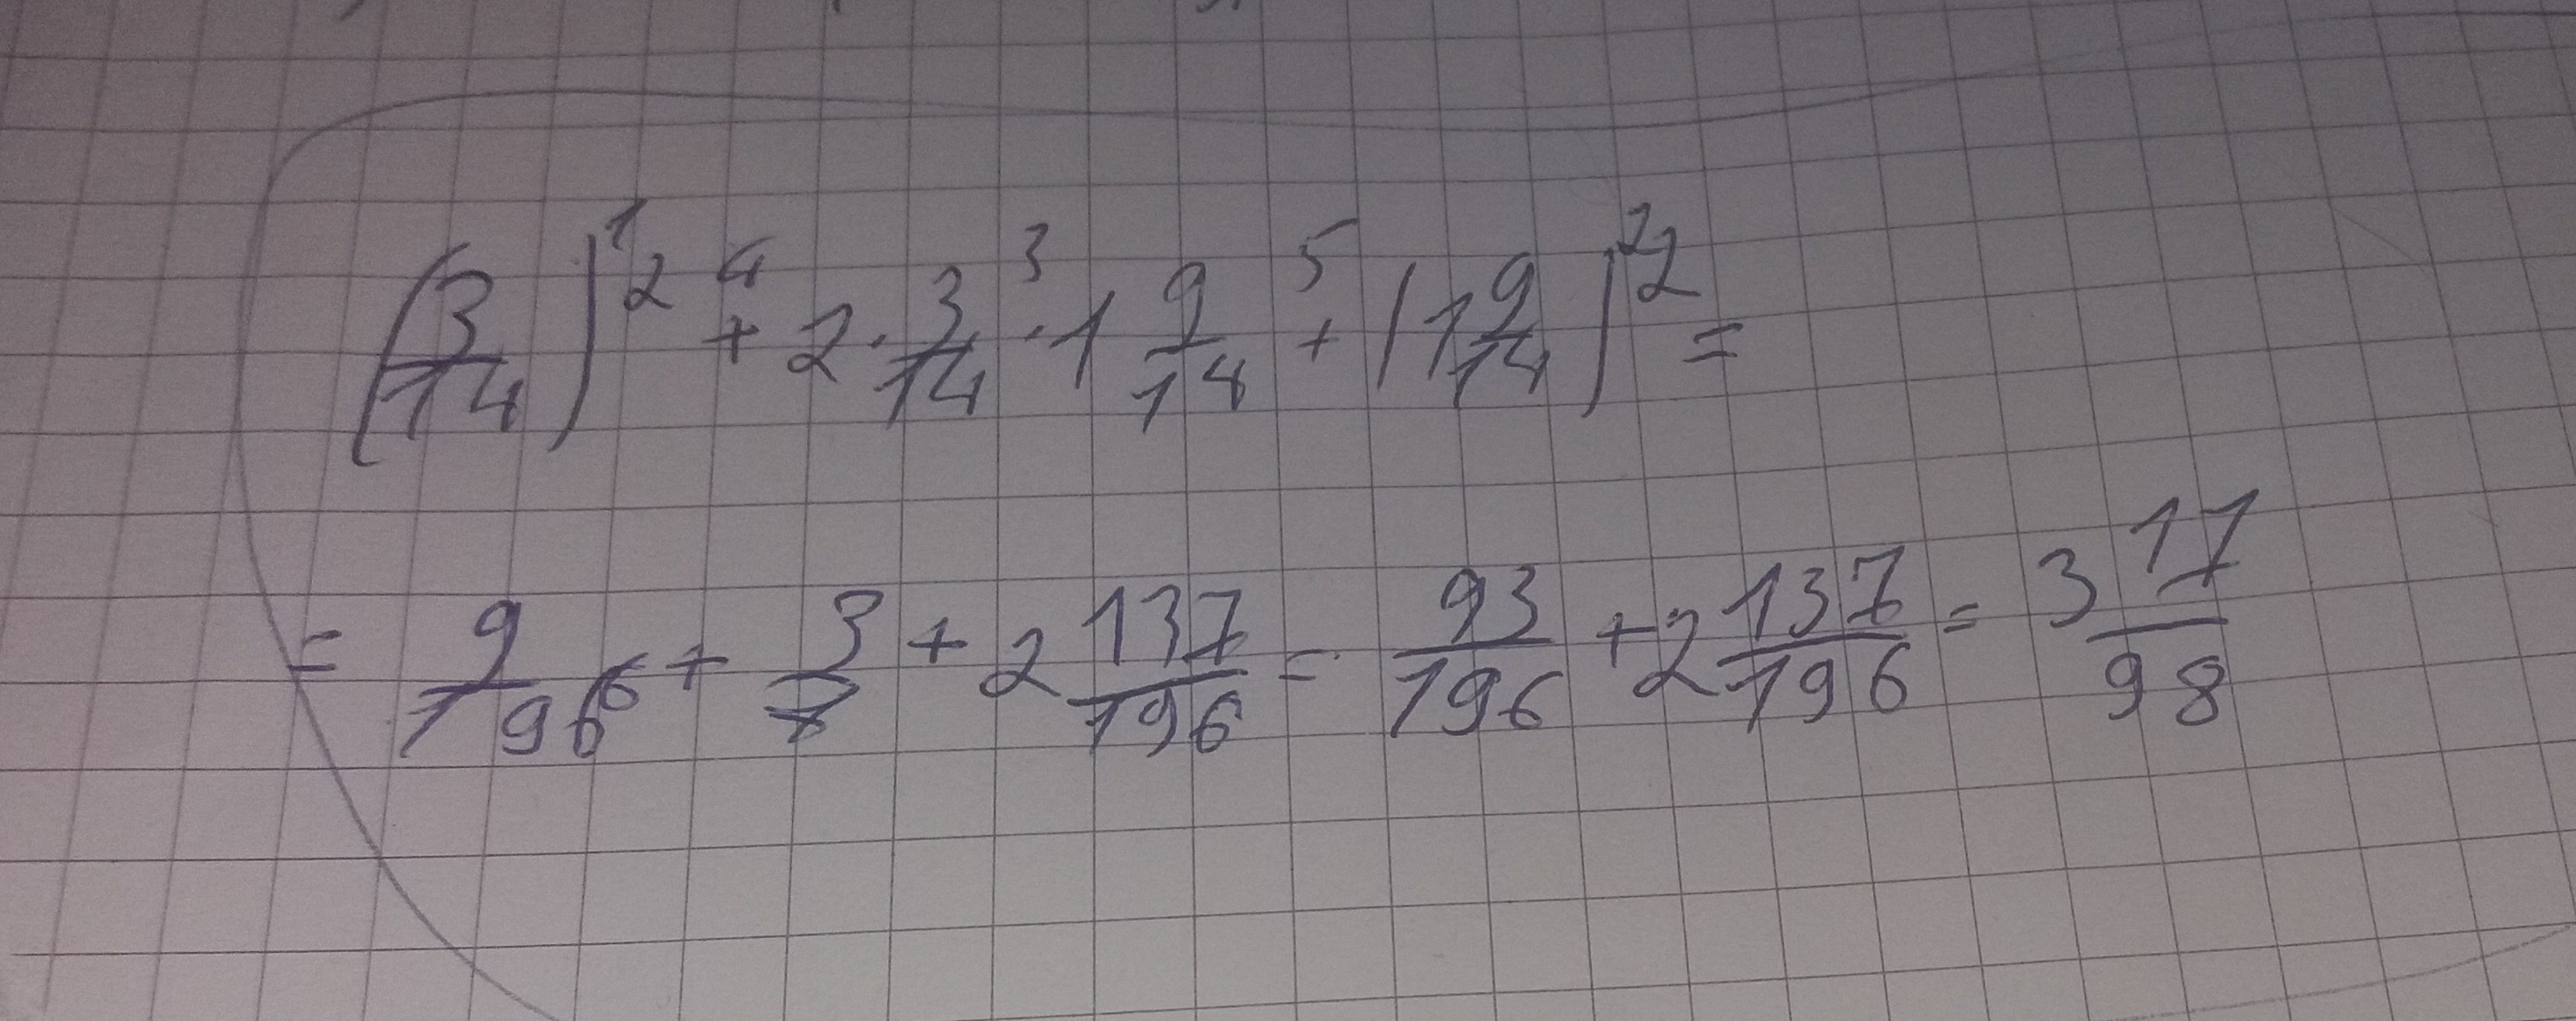 (3/14)¹² +⁴ 2 · 3/14 ·³ 1 9/14 +⁵ (1 9/14)²² =
= 9/196 + 3/7 + 2 137/196 = 93/196 + 2 137/196 = 3 17/98